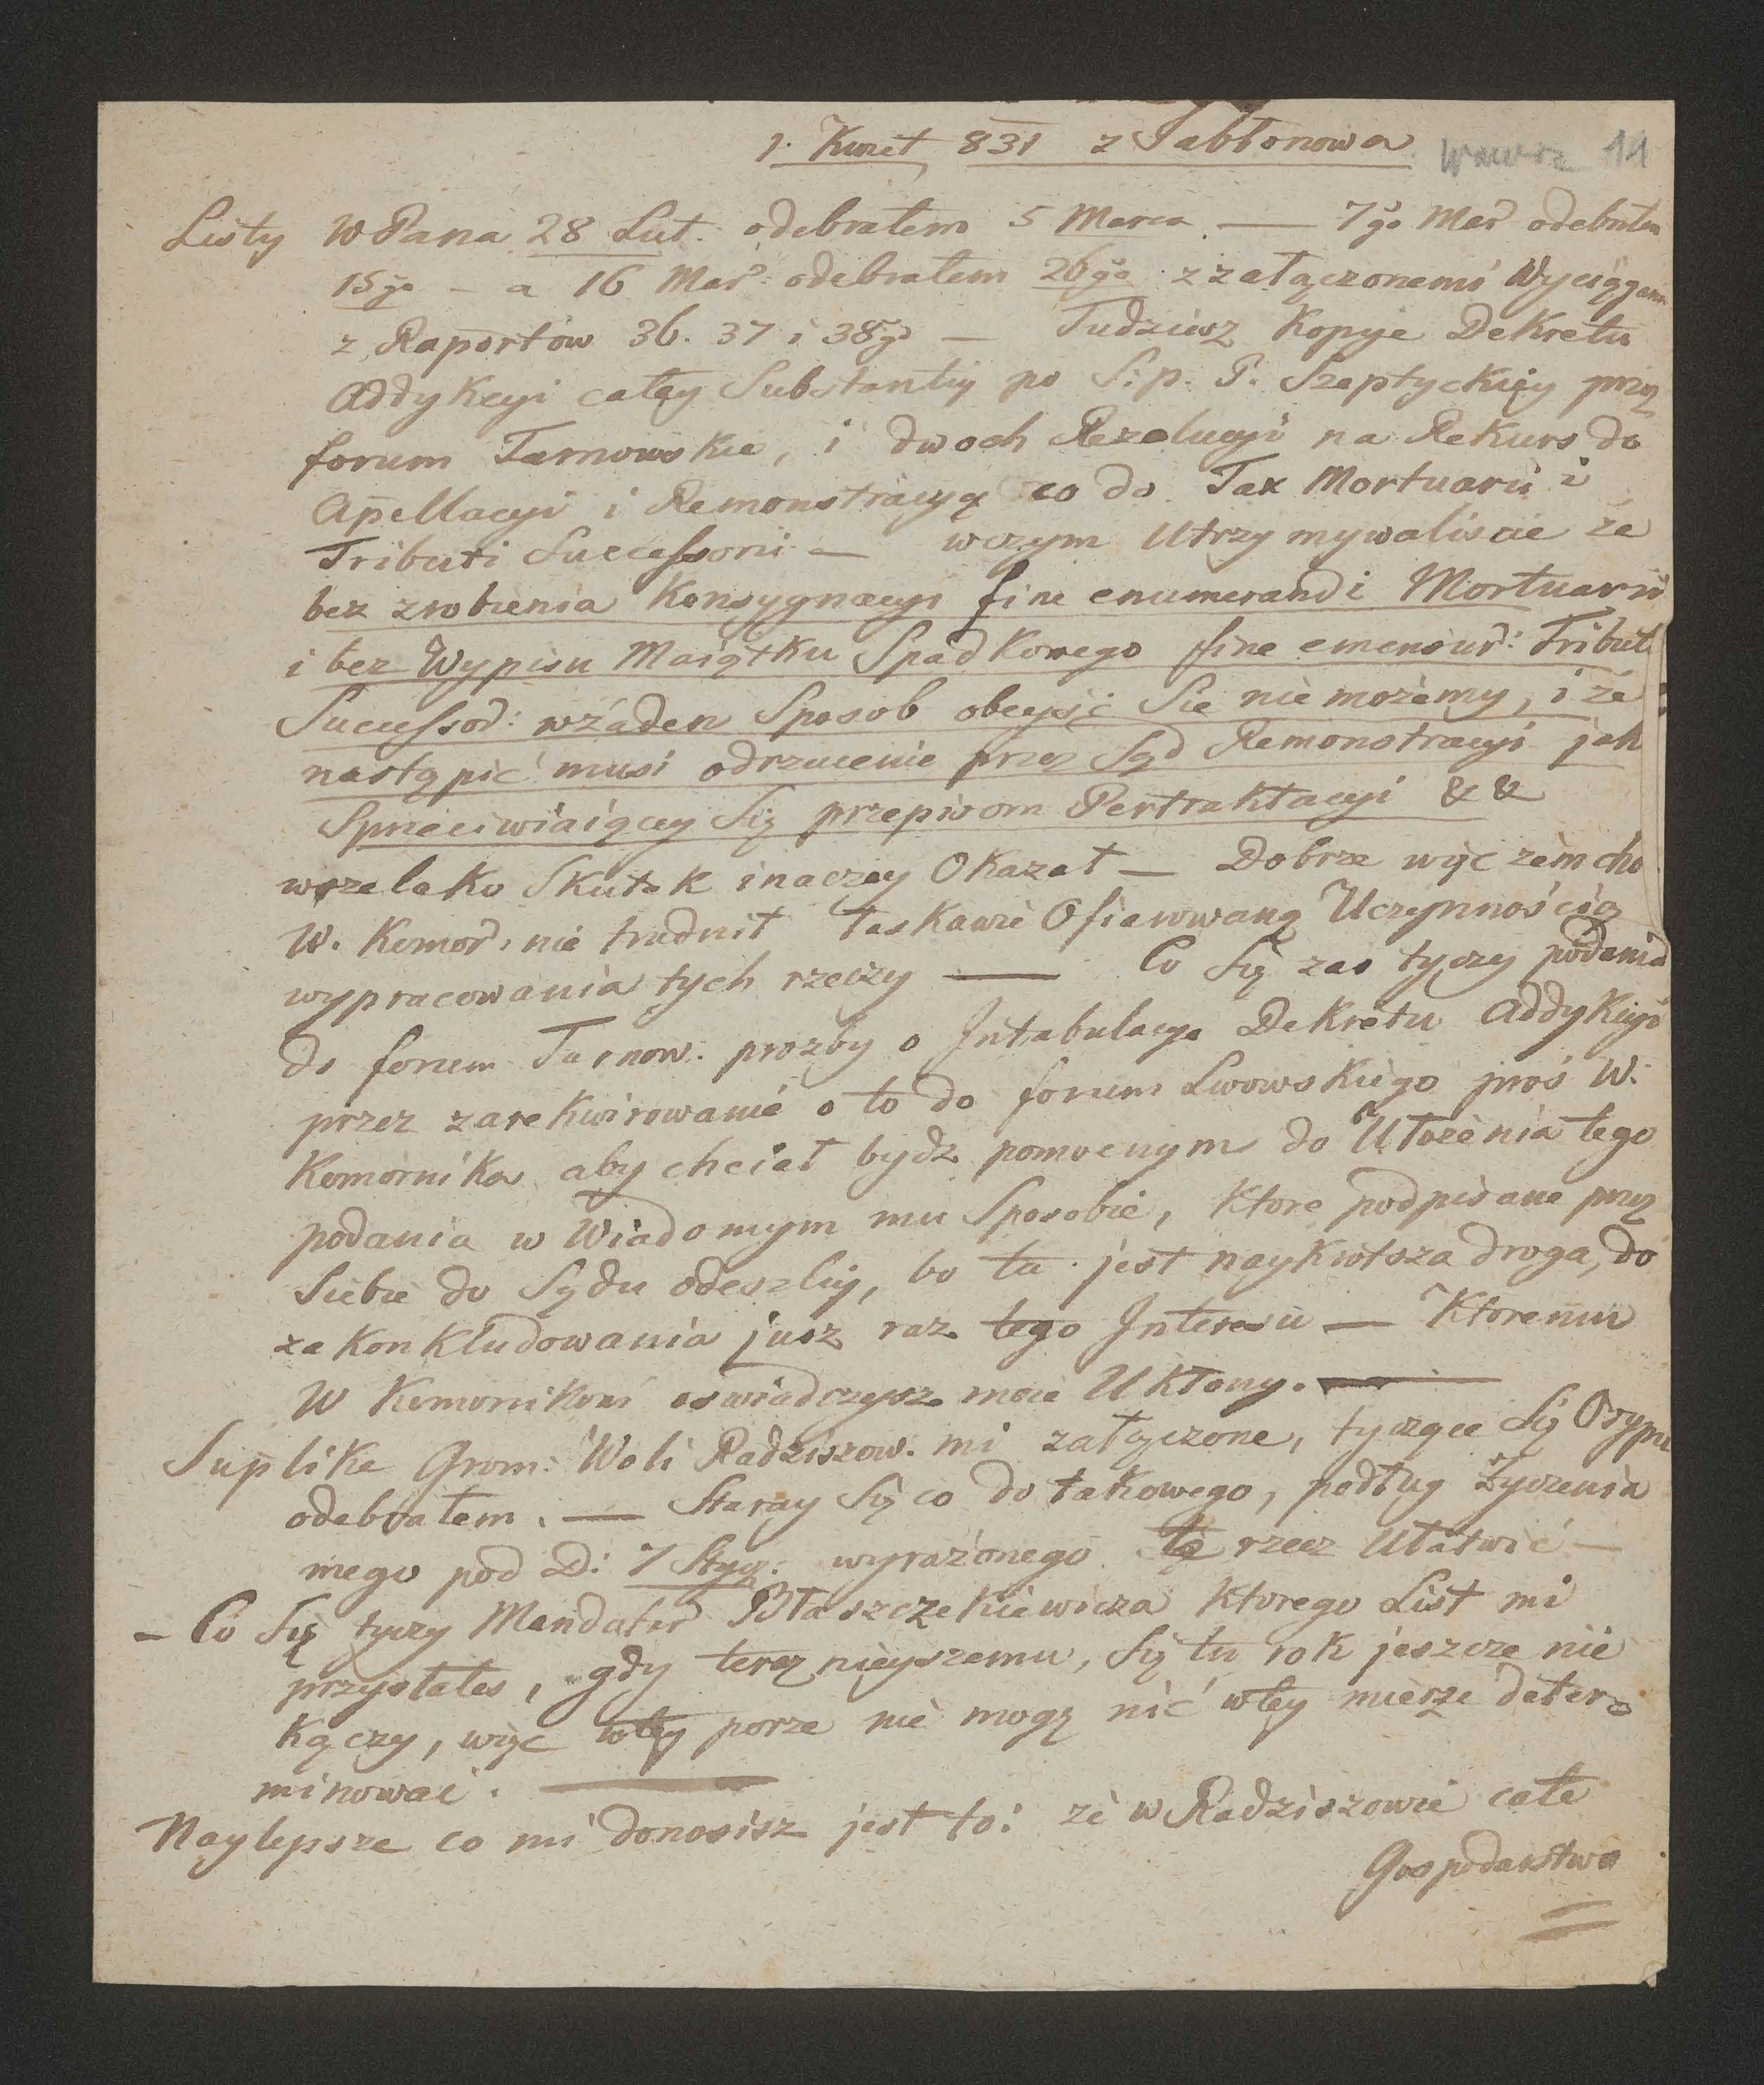 1. Kwiet, 831 z Jabłonowa 11
Listy WPana 28 Lut. odebrałem 5 Marca — 7go Mar odebrałem
15go – a 16 Mar: odebrałem 26go z załączonemi Wyciągami
z Raportów 36. 37 i 38go — Tudziesz Kopije Dekretu
Addykcyi całey Substantiy po S. p. P. Szeptyckiey przez
forum Tarnowskie, i dwoch Rezolucyi na Rekurs do
Apellacyi i Remonstracyą co do Tax Mortuarii i
Tributi Successorii — wczym Utrzymywaliscie że
bez zrobienia Konsygnacyi fine enumerandi Mortuarii
i bez Wypisu Maiątku Spadkowego fine emensur: Tribut
Successor: wżaden Sposob obeyść Sie nie możemy, i że
nastąpić musi odrzucenie przez Sąd Remonstracyi jak
Sprzeciwiaiącey Się przepisom Pertraktacyi & &
wszelako Skutek inaczey Okazał — Dobrze więc żem
W. Komor. nie trudnił łaskawie Ofiarowaną Uczynnością
wypracowania tych rzeczy — Co Się zas tyczy podania
do forum Tarnow: prozby o Intabulacye Dekretu Addykcyi
przez zarekwirowanié o to do forum Lwowskiego proś W.
Komornika aby chciał bydz pomocnym do Ułożenia tego
podania w Wiadomym mu Sposobie, Ktore podpisane przez
Siebie do Sądu odeszliy, bo ta jest naykrotsza droga, do
zakonkludowania jusz raz tego Interesu — Ktoremu
W Komornikowi oswiadczysz moie Ukłony. —
Suplike Grom: Woli Radziszow. mi załączone, tyczące Się Osypu
odebrałem. — Staray Się co do takowego, podług Zyczenia
mego pod D: 7 Stycz: wyrażonego tę rzecz Ułatwić —
– Co Się tyczy Mandator Błaszczekiewicza Ktorego List mi
przysłałes, gdy teraznieyszemu, Się tu rok jeszcze nie
Kączy, więc wtey porze nie mogę nić wtey mierze deter-
minować. —
Naylepsze co mi donosisz jest to: że w Radziszowie całe
Gospodarstwo